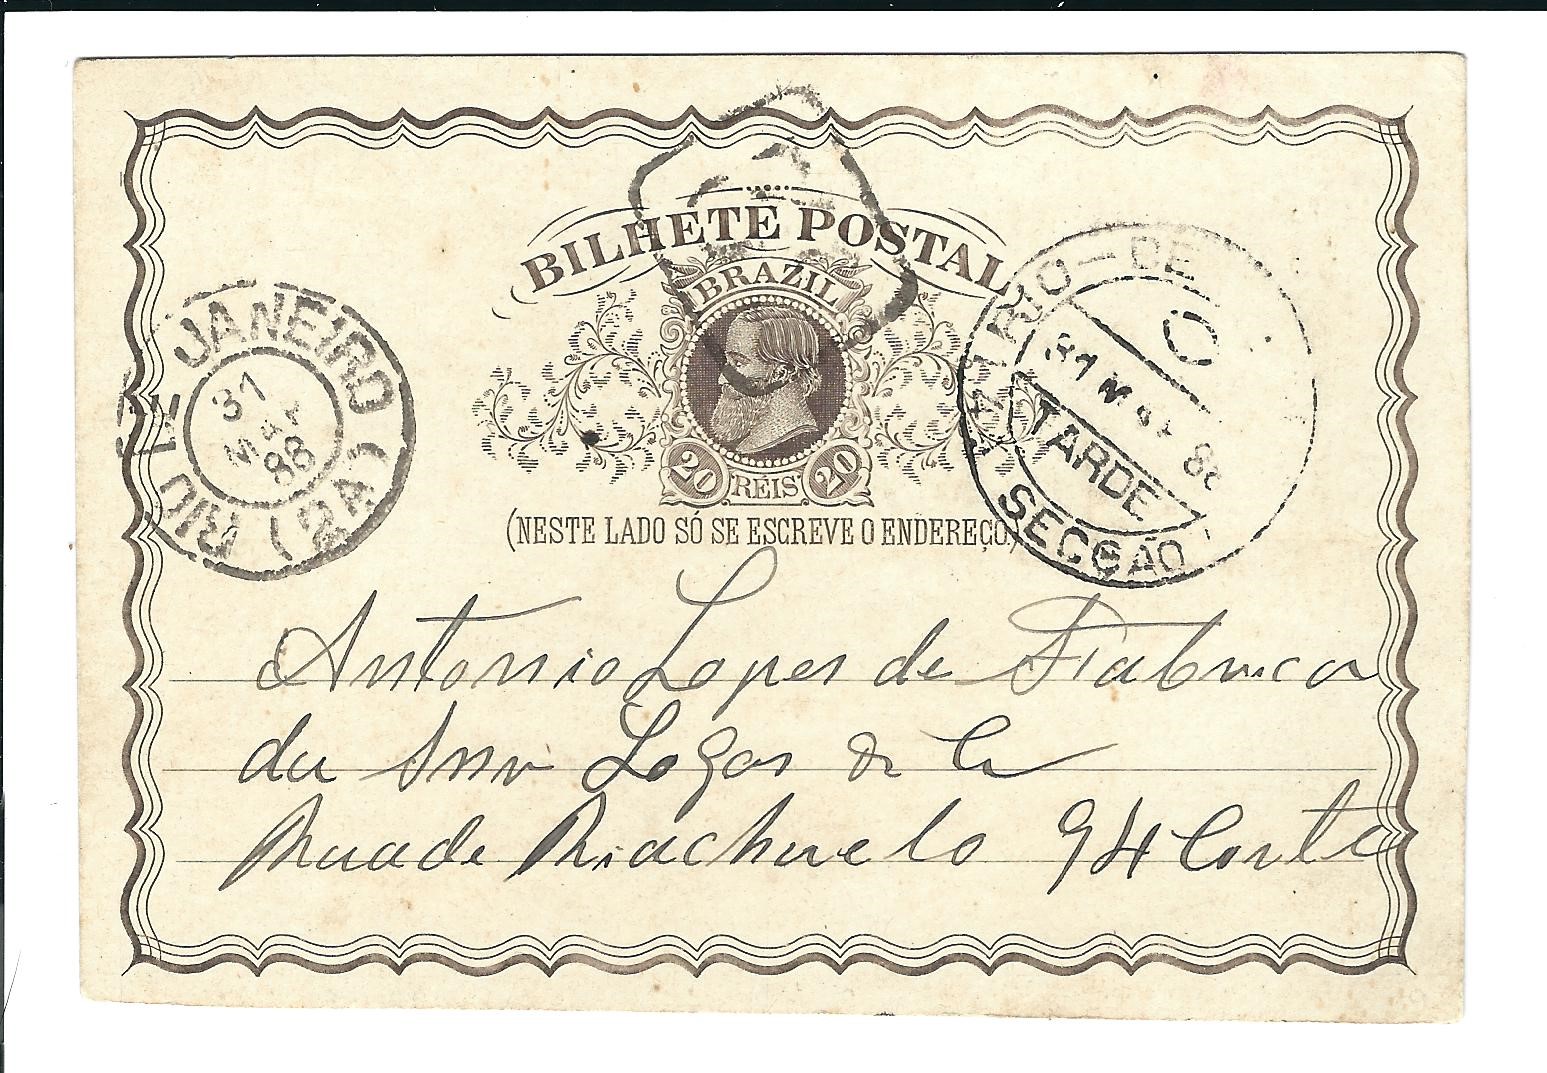 BILHETE POSTAL
BRAZIL
20 RÉIS 20
(NESTE LADO SÓ SE ESCREVE O ENDEREÇO)
RIO DE JANEIRO (2A)
31
MAI
88
RIO-DE
31 MAI 88
TARDE
SECÇÃO
Antonio Lopes de
da Snr &
Rua de Riachuelo 94 Corte